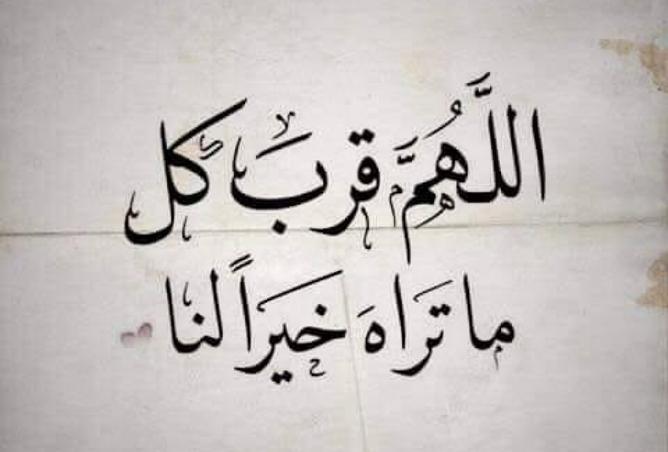 اللَّهُمَّ قربَ كل
ما تَراهَ خيراً لنا